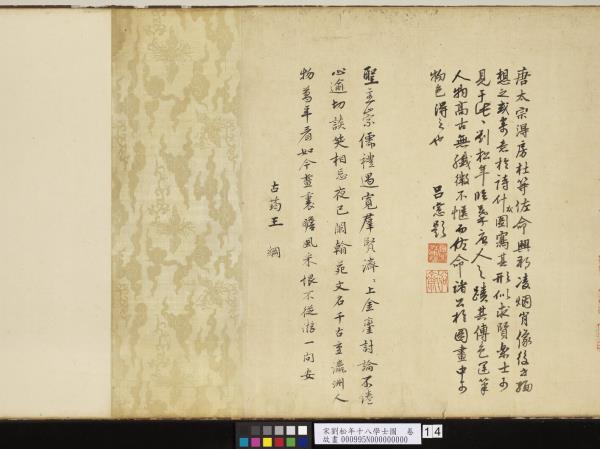 唐太宗得房杜等佐命興邦凌烟肖像後世緬
想之或著於詩什或圖寫其形似求賢樂士可
見于此刘松年臨摹唐人之蹟其傳色運筆
人物高古無纖微不愜而佐命諸公於圖畫中可
物色得之也 呂憲題
聖主崇儒禮遇寬羣賢濟〻上金鑾討論不倦
心逾切談笑相忘夜已闌翰苑文名千古重瀛洲人
物萬年看如今畫裏瞻風采恨不從游一問安
王綱
宋劉松年十八學士圖 卷
故畫 000995N000000000
14